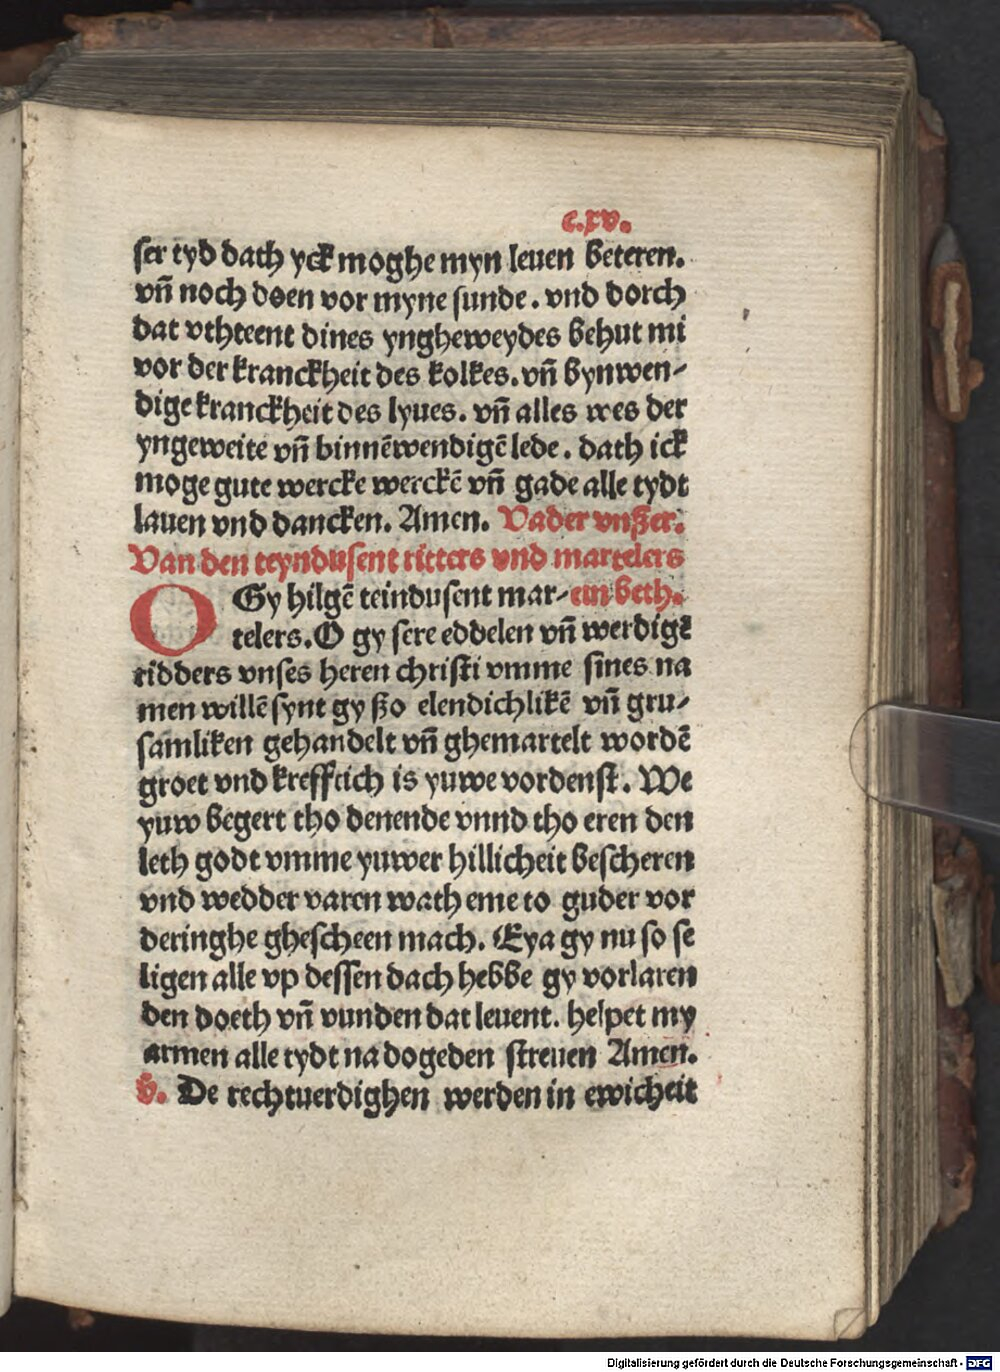 c.xv.
ser tyd dath yck moghe myn leuen beteren.
vn̄ noch doen vor myne sunde. vnd dorch
dat vthteent dines yngheweydes behut mi
vor der kranckheit des kolkes. vn̄ bynwen⸗
dige kranckheit des lyues. vn̄ alles wes der
yngeweite vn̄ binnēwendigē lede. dath ick
moge gute wercke werckē vn̄ gade alle tydt
lauen vnd dancken. Amen. Vader vnßer.
Van den teyndusent ritters vnd martelers
OGy hilgē teindusent mar⸗ ein beth.
telers. O gy sere eddelen vn̄ werdigē
ridders vnses heren christi vmme sines na
men willē synt gy ßo elendichlikē vn̄ gru⸗
samliken gehandelt vn̄ ghemartelt wordē
groet vnd krefftich is yuwe vordenst. We
yuw begert tho denende vnnd tho eren den
leth godt vmme yuwer hillicheit bescheren
vnd wedder varen wath eme to guder vor
deringhe ghescheen mach. Eya gy nu so se
ligen alle vp dessen dach hebbe gy vorlaren
den doeth vn̄ vunden dat leuent. helpet my
armen alle tydt na dogeden streuen Amen.
v̄. De rechtuerdighen werden in ewicheit
Digitalisierung gefördert durch die Deutsche Forschungsgemeinschaft - DFG